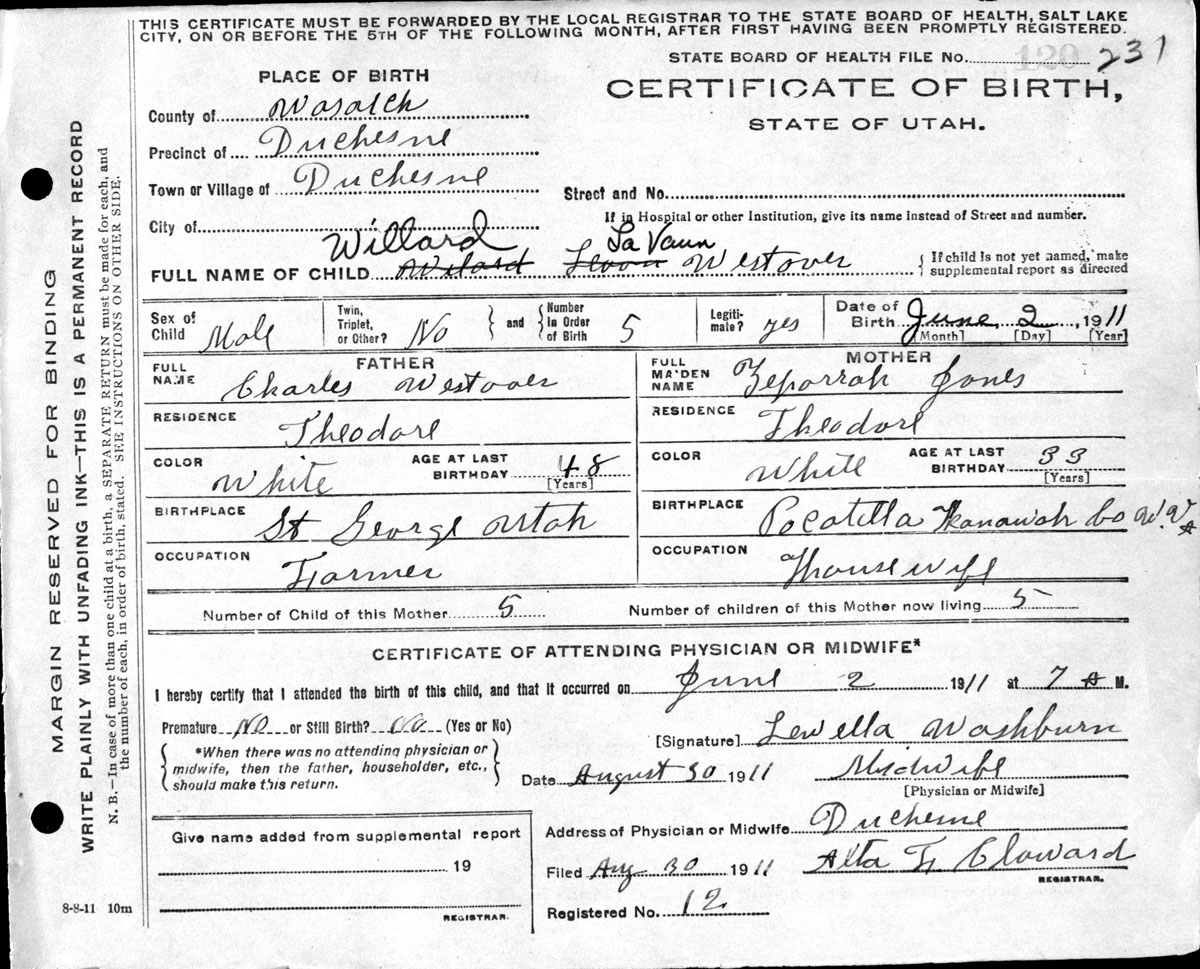 THIS CERTIFICATE MUST BE FORWARDED BY THE LOCAL REGISTRAR TO THE STATE BOARD OF HEALTH, SALT LAKE
CITY, ON OR BEFORE THE 5TH OF THE FOLLOWING MONTH, AFTER FIRST HAVING BEEN PROMPTLY REGISTERED.
STATE BOARD OF HEALTH FILE No. 120 231
PLACE OF BIRTH
CERTIFICATE OF BIRTH,
STATE OF UTAH.
County of Wasatch
Precinct of Duchesne
Town or Village of Duchesne
Street and No.
City of
If in Hospital or other Institution, give its name instead of Street and number.
Willard LaVaun
FULL NAME OF CHILD Wilard Levon Westover
{ If child is not yet named, make
supplemental report as directed
Sex of Child Male
Twin, Triplet, or Other? No
and { Number in Order of Birth 5
Legiti-mate? yes
Date of Birth June 2, 1911
[Month] [Day] [Year]
FATHER
FULL NAME Charles Westover
RESIDENCE Theodore
COLOR White
AGE AT LAST BIRTHDAY 48
[Years]
BIRTHPLACE St George Utah
OCCUPATION Farmer
MOTHER
FULL MAIDEN NAME Zeporrah Jones
RESIDENCE Theodore
COLOR White
AGE AT LAST BIRTHDAY 33
[Years]
BIRTHPLACE Pocatella Kanawah Co W.V.
OCCUPATION Housewife
Number of Child of this Mother 5
Number of children of this Mother now living 5
CERTIFICATE OF ATTENDING PHYSICIAN OR MIDWIFE*
I hereby certify that I attended the birth of this child, and that it occurred on June 2 1911 at 7 A M.
Premature No or Still Birth? No (Yes or No)
*When there was no attending physician or
midwife, then the father, householder, etc.,
should make this return.
[Signature] Lewella Washburn
Date August 30 1911 Midwife
[Physician or Midwife]
Give name added from supplemental report
19
REGISTRAR.
Address of Physician or Midwife Duchesne
Filed Aug 30 1911 Alta F. Cloward
REGISTRAR.
Registered No. 12
8-8-11 10m
MARGIN RESERVED FOR BINDING
WRITE PLAINLY WITH UNFADING INK—THIS IS A PERMANENT RECORD
N. B.—In case of more than one child at a birth, a SEPARATE RETURN must be made for each, and
the number of each, in order of birth, stated. SEE INSTRUCTIONS ON OTHER SIDE.